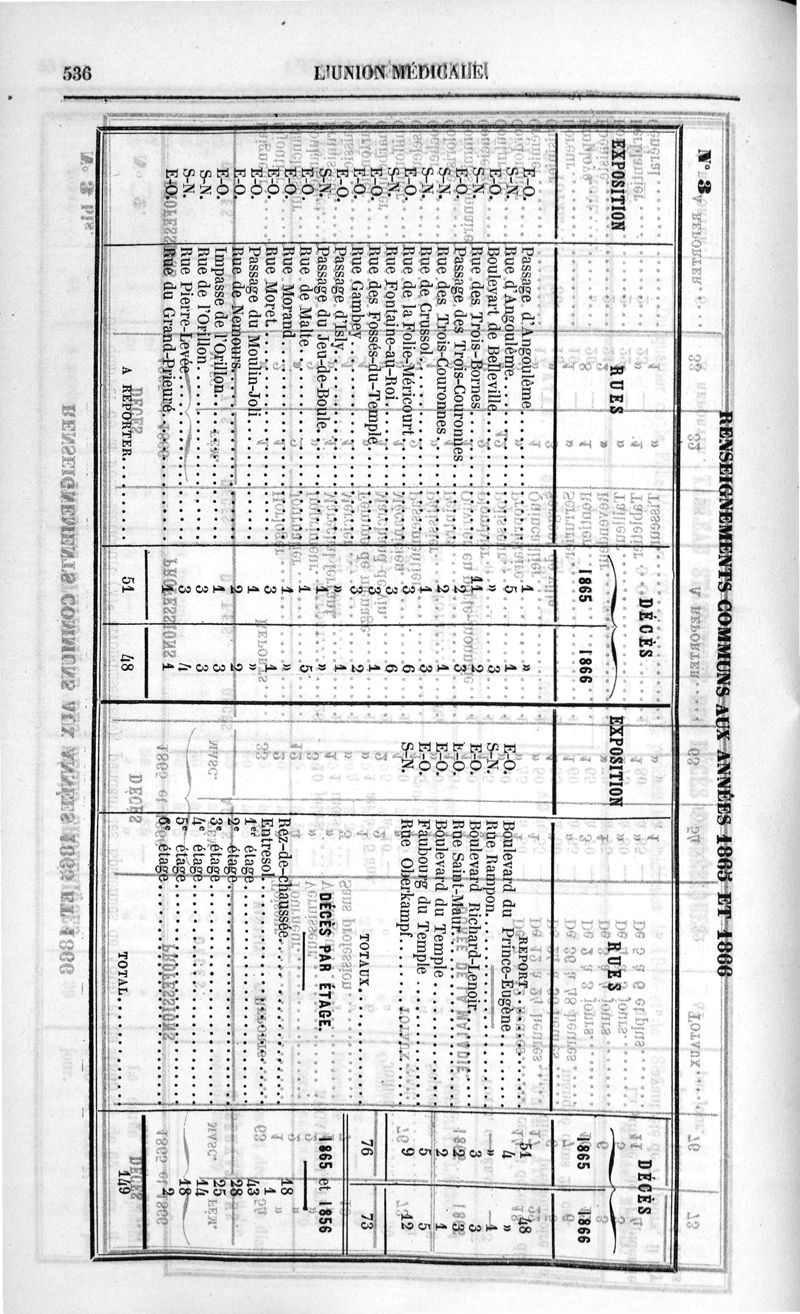 536
L'UNION MÉDICALE.
RENSEIGNEMENTS COMMUNS AUX ANNÉES 1865 ET 1866
N° 3
EXPOSITION RUES DÉCÈS
1865 1866
E-O. Passage d'Angoulême 1 »
S-N. Rue d'Angoulême 5 1
E-O. Boulevart de Belleville » 3
S-N. Rue des Trois-Bornes 11 2
E-O. Passage des Trois-Couronnes 2 3
S-N. Rue des Trois-Couronnes 2 1
S-N. Rue de Crussol 1 3
E-O. Rue de la Folie-Méricourt 3 6
S-N. Rue Fontaine-au-Roi 3 6
E-O. Rue des Fossés-du-Temple 3 1
E-O. Rue Gambey 3 2
E-O. Passage d'Isly » 1
S-N. Passage du Jeu-de-Boule 1 »
E-O. Rue de Malte 1 5
E-O. Rue Morand 1 »
E-O. Rue Moret 3 1
E-O. Passage du Moulin-Joli 1 »
E-O. Rue de Nemours 2 2
E-O. Impasse de l'Orillon 1 3
S-N. Rue de l'Orillon 3 3
S-N. Rue Pierre-Levée 3 4
E-O. Rue du Grand-Prieuré 1 1
A REPORTER 51 48
EXPOSITION RUES DÉCÈS
1865 1866
REPORT 51 48
E-O. Boulevard du Prince-Eugène 4 »
S-N. Rue Rampon » 1
E-O. Boulevard Richard-Lenoir 3 3
E-O. Rue Saint-Maur 2 3
E-O. Boulevard du Temple 2 1
E-O. Faubourg du Temple 5 5
S-N. Rue Oberkampf 9 12
TOTAUX 76 73
DÉCÈS PAR ÉTAGE. 1865 et 1856
Rez-de-chaussée 18
Entresol 1
1er étage 43
2e étage 28
3e étage 25
4e étage 14
5e étage 18
6e étage 2
TOTAL 149